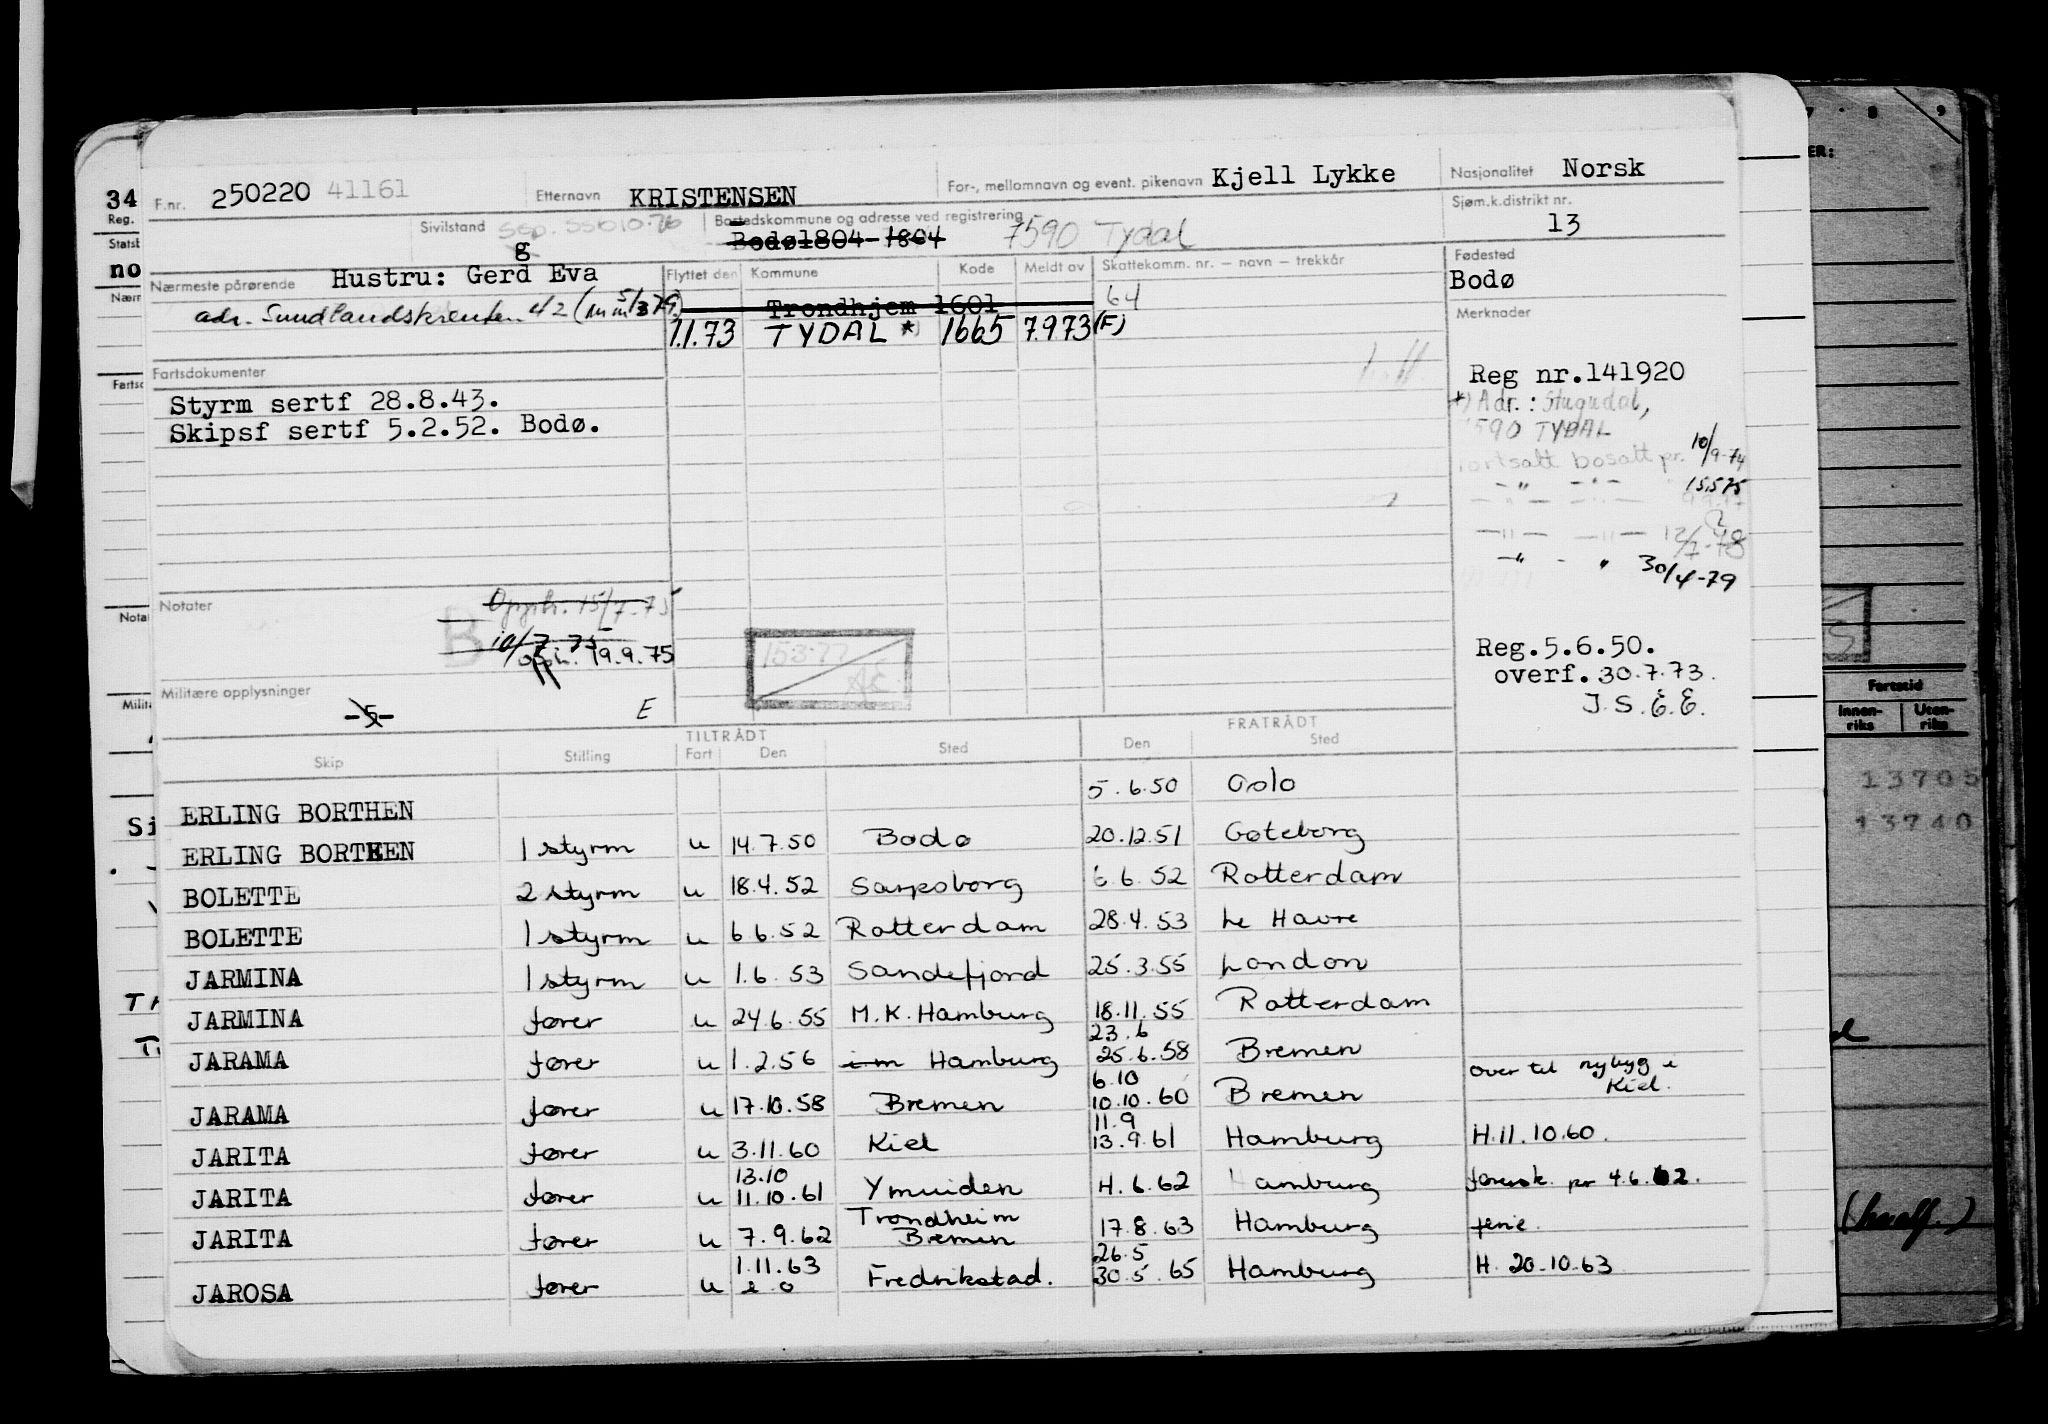 34 F.nr. 250220 41161 Etternavn KRISTENSEN For-, mellomnavn og event. pikenavn Kjell Lykke Nasjonalitet Norsk
Reg. Sivilstand g Bostedskommune og adresse ved registrering Sjøm.k.distrikt nr.
Bodø1804 1804 7590 Tydal 13
no Nærmeste pårørende Hustru: Gerd Eva Flyttet den Kommune Kode Meldt av Skattekomm. nr. — navn — trekkår Fødested
Bodø
adr. Sundlandskrenten 42 Trondhjem 1601 64 Merknader
1.1.73 TYDAL *) 1665 7.9.73 (F)
Fartsdokumenter
Styrm sertf 28.8.43.
Skipsf sertf 5.2.52. Bodø.
Reg nr.141920
*) Adr.: Stugudal,
7590 TYDAL
fortsatt bosatt pr. 10/9-74
— " — — " — 15.5.75
— " — — " — 12/7-78
— " - " 30/4-79
Notater 15/7-75
opph. 19.9.75
B
15.3.77
Reg.5.6.50.
overf. 30.7.73.
J.S. E.E.
Militære opplysninger
-5- E
TILTRÅDT FRATRÅDT
Skip Stilling Fart Den Sted Den Sted
ERLING BORTHEN 5.6.50 Oslo
ERLING BORTHEN 1 styrm u 14.7.50 Bodø 20.12.51 Gøteborg
BOLETTE 2 styrm u 18.4.52 Sarpsborg 6.6.52 Rotterdam
BOLETTE 1 styrm u 6.6.52 Rotterdam 28.4.53 Le Havre
JARMINA 1 styrm u 1.6.53 Sandefjord 25.3.55 London
JARMINA fører u 24.6.55 M.K. Hamburg 18.11.55 Rotterdam
JARAMA fører u 1.2.56 i m Hamburg 23.6 25.6.58 Bremen
JARAMA fører u 17.10.58 Bremen 6.10 10.10.60 Bremen over til nybyg i Kiel.
JARITA fører u 3.11.60 Kiel 11.9 13.9.61 Hamburg H.11.10.60.
JARITA fører u 13.10 11.10.61 Ymuiden H.6.62 Hamburg pr 4.6.62.
JARITA fører u 7.9.62 Trondheim Bremen 17.8.63 Hamburg ferie.
JAROSA fører u 1.11.63 Fredrikstad. 26.5 30.5.65 Hamburg H. 20.10.63
Fartstid
Innen-riks Uten-riks
13705
13740